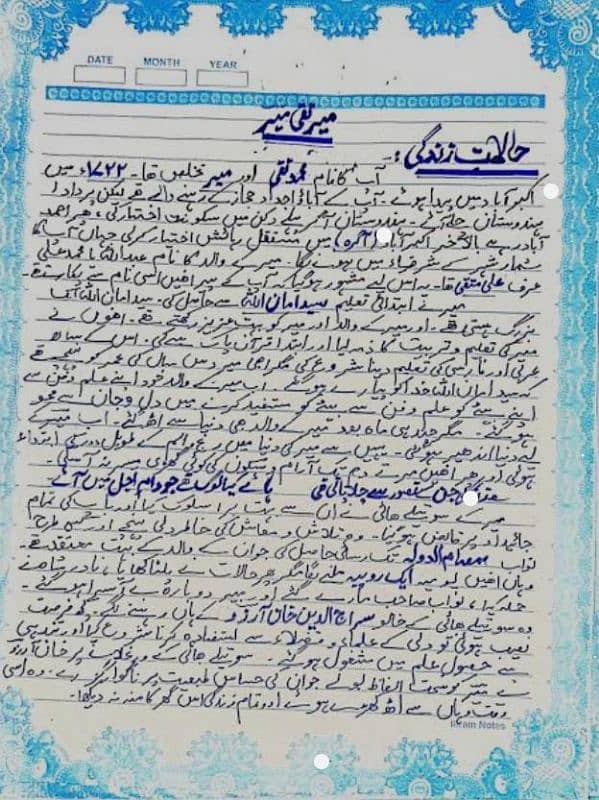 DATE MONTH YEAR
میر تقی میر
حالات زندگی:
آپ کا نام محمد تقی اور میر تخلص تھا۔ ۱۷۲۲ء میں
اکبر آباد میں پیدا ہوئے۔ آپ کے آباؤ اجداد حجاز کے رہنے والے تھے لیکن پردادا
ہندوستان چلے آئے۔ ہندوستان پہلے دکن میں سکونت اختیار کی، پھر احمد
آباد رہے بالآخر اکبر آباد (آگرہ) میں مستقل رہائش اختیار کر لی جہاں آپ کا
شمار شہر کے شرفاء میں ہونے لگا۔ میر کے والد کا نام عبداللہ یا محمد علی
عرف علی متقی تھا۔ یہ اس لیے مشہور ہو گیا کہ آپ کے میر انھیں اسی نام سے پکارتے تھے۔
میر نے ابتدائی تعلیم سید امان اللہ سے حاصل کی۔ سید امان اللہ
بزرگ ہستی تھے۔ اور میر کے والد اور میر کو بہت عزیز رکھتے تھے۔ انھوں نے
میر کی تعلیم و تربیت کا ذمہ لیا اور ابتدا قرآن پاک سے کی۔ اس کے ساتھ
عربی اور فارسی کی تعلیم دینا شروع کی مگر ابھی میر دس سال کی عمر کو پہنچے تھے
کہ سید امان اللہ خدا کو پیارے ہو گئے۔ اب میر کے والد خود اپنے علم و فن سے
اپنے بیٹے کو علم و فن سے مستفید کرنے میں دل و جان سے محو
ہو گئے۔ مگر چند ہی ماہ بعد میر کے والد بھی دنیا سے اٹھ گئے۔ اب میر کے
لیے دنیا اندھیر ہو گئی۔ یہیں سے میر کی دنیا میں رنج و الم کے طویل دور کی ابتداء
ہوئی اور پھر انھیں مرتے دم تک آرام و سکون کی کوئی گھڑی میسر نہ آ سکی۔
میر کے سوتیلے بھائی نے ان سے بہت برا سلوک کیا اور باپ کی تمام
جائیداد پر قابض ہو گیا۔ وہ تلاش و معاش کی خاطر دلی پہنچے اور کسی طرح
نواب صمصام الدولہ تک رسائی حاصل کی جو ان کے والد کے بہت معتقد تھے۔
وہاں انھیں یومیہ ایک روپیہ ملنے لگا مگر پھر حالات نے پلٹا کھایا، نادر شاہ نے
حملہ کیا، نواب صاحب مارے گئے اور میر دوبارہ بے آسرا ہو گئے۔
وہ سوتیلے بھائی کے خالو سراج الدین خان آرزو کے ہاں رہنے لگے۔ کچھ فرصت
نصیب ہوئی تو دلی کے علماء و فضلاء سے استفادہ کرنا شروع کیا اور تندہی
سے حصول علم میں مشغول ہو گئے۔ سوتیلے بھائی کے ورغلانے پر خان آرزو
نے میر کو سخت الفاظ بولے جو ان کی حساس طبیعت پر ناگوار گزرے۔ وہ اسی
وقت وہاں سے اٹھ کھڑے ہوئے اور تمام زندگی اس گھر کا منہ نہ دیکھا۔
Ikram Notes